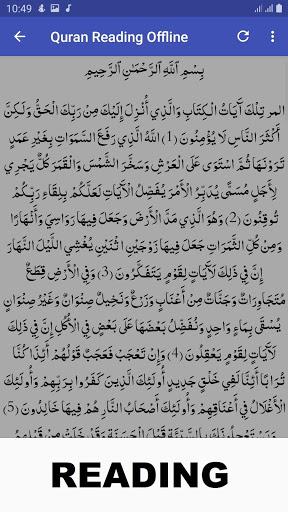 10:49
Quran Reading Offline
بِسْمِ اللَّهِ الرَّحْمَٰنِ الرَّحِيمِ
المر تِلْكَ آيَاتُ الْكِتَابِ وَالَّذِي أُنْزِلَ إِلَيْكَ مِنْ رَبِّكَ الْحَقُّ وَلَكِنَّ
أَكْثَرَ النَّاسِ لَا يُؤْمِنُونَ (1) اللَّهُ الَّذِي رَفَعَ السَّمَوَاتِ بِغَيْرِ عَمَدٍ
تَرَوْنَهَا ثُمَّ اسْتَوَى عَلَى الْعَرْشِ وَسَخَّرَ الشَّمْسَ وَالْقَمَرَ كُلٌّ يَجْرِي
لِأَجَلٍ مُسَمًّى يُدَبِّرُ الْأَمْرَ يُفَصِّلُ الْآيَاتِ لَعَلَّكُمْ بِلِقَاءِ رَبِّكُمْ
تُوقِنُونَ (2) وَهُوَ الَّذِي مَدَّ الْأَرْضَ وَجَعَلَ فِيهَا رَوَاسِيَ وَأَنْهَارًا
وَمِنْ كُلِّ الثَّمَرَاتِ جَعَلَ فِيهَا زَوْجَيْنِ اثْنَيْنِ يُغْشِي اللَّيْلَ النَّهَارَ
إِنَّ فِي ذَلِكَ لَآيَاتٍ لِقَوْمٍ يَتَفَكَّرُونَ (3) وَفِي الْأَرْضِ قِطَعٌ
مُتَجَاوِرَاتٌ وَجَنَّاتٌ مِنْ أَعْنَابٍ وَزَرْعٌ وَنَخِيلٌ صِنْوَانٌ وَغَيْرُ صِنْوَانٍ
يُسْقَى بِمَاءٍ وَاحِدٍ وَنُفَضِّلُ بَعْضَهَا عَلَى بَعْضٍ فِي الْأُكُلِ إِنَّ فِي ذَلِكَ
لَآيَاتٍ لِقَوْمٍ يَعْقِلُونَ (4) وَإِنْ تَعْجَبْ فَعَجَبٌ قَوْلُهُمْ أَئِذَا كُنَّا
تُرَابًا أَئِنَّا لَفِي خَلْقٍ جَدِيدٍ أُولَئِكَ الَّذِينَ كَفَرُوا بِرَبِّهِمْ وَأُولَئِكَ
الْأَغْلَالُ فِي أَعْنَاقِهِمْ وَأُولَئِكَ أَصْحَابُ النَّارِ هُمْ فِيهَا خَالِدُونَ (5)
وَيَسْتَعْجِلُونَكَ بِالسَّيِّئَةِ قَبْلَ الْحَسَنَةِ وَقَدْ خَلَتْ مِنْ قَبْلِهِمُ
READING